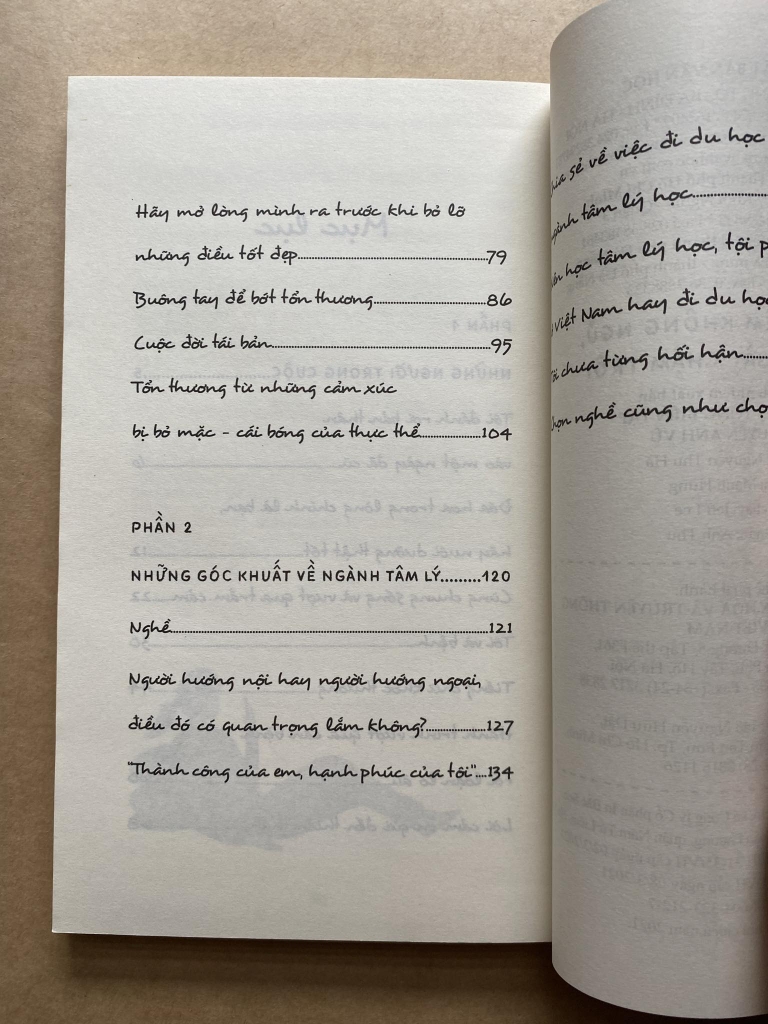 Hãy mở lòng mình ra trước khi bỏ lỡ
những điều tốt đẹp.....................79
Buông tay để bớt tổn thương.....................86
Cuộc đời tái bản.....................95
Tổn thương từ những cảm xúc
bị bỏ mặc - cái bóng của thực thể.....................104
PHẦN 2
NHỮNG GÓC KHUẤT VỀ NGÀNH TÂM LÝ.........120
Nghề.....................121
Người hướng nội hay người hướng ngoại,
điều đó có quan trọng lắm không?.....................127
"Thành công của em, hạnh phúc của tôi"....134
sẻ về việc đi du học
tâm lý học.....................
học tâm lý học, tội
Việt Nam hay đi du học
chưa từng hối hận..........
nghề cũng như